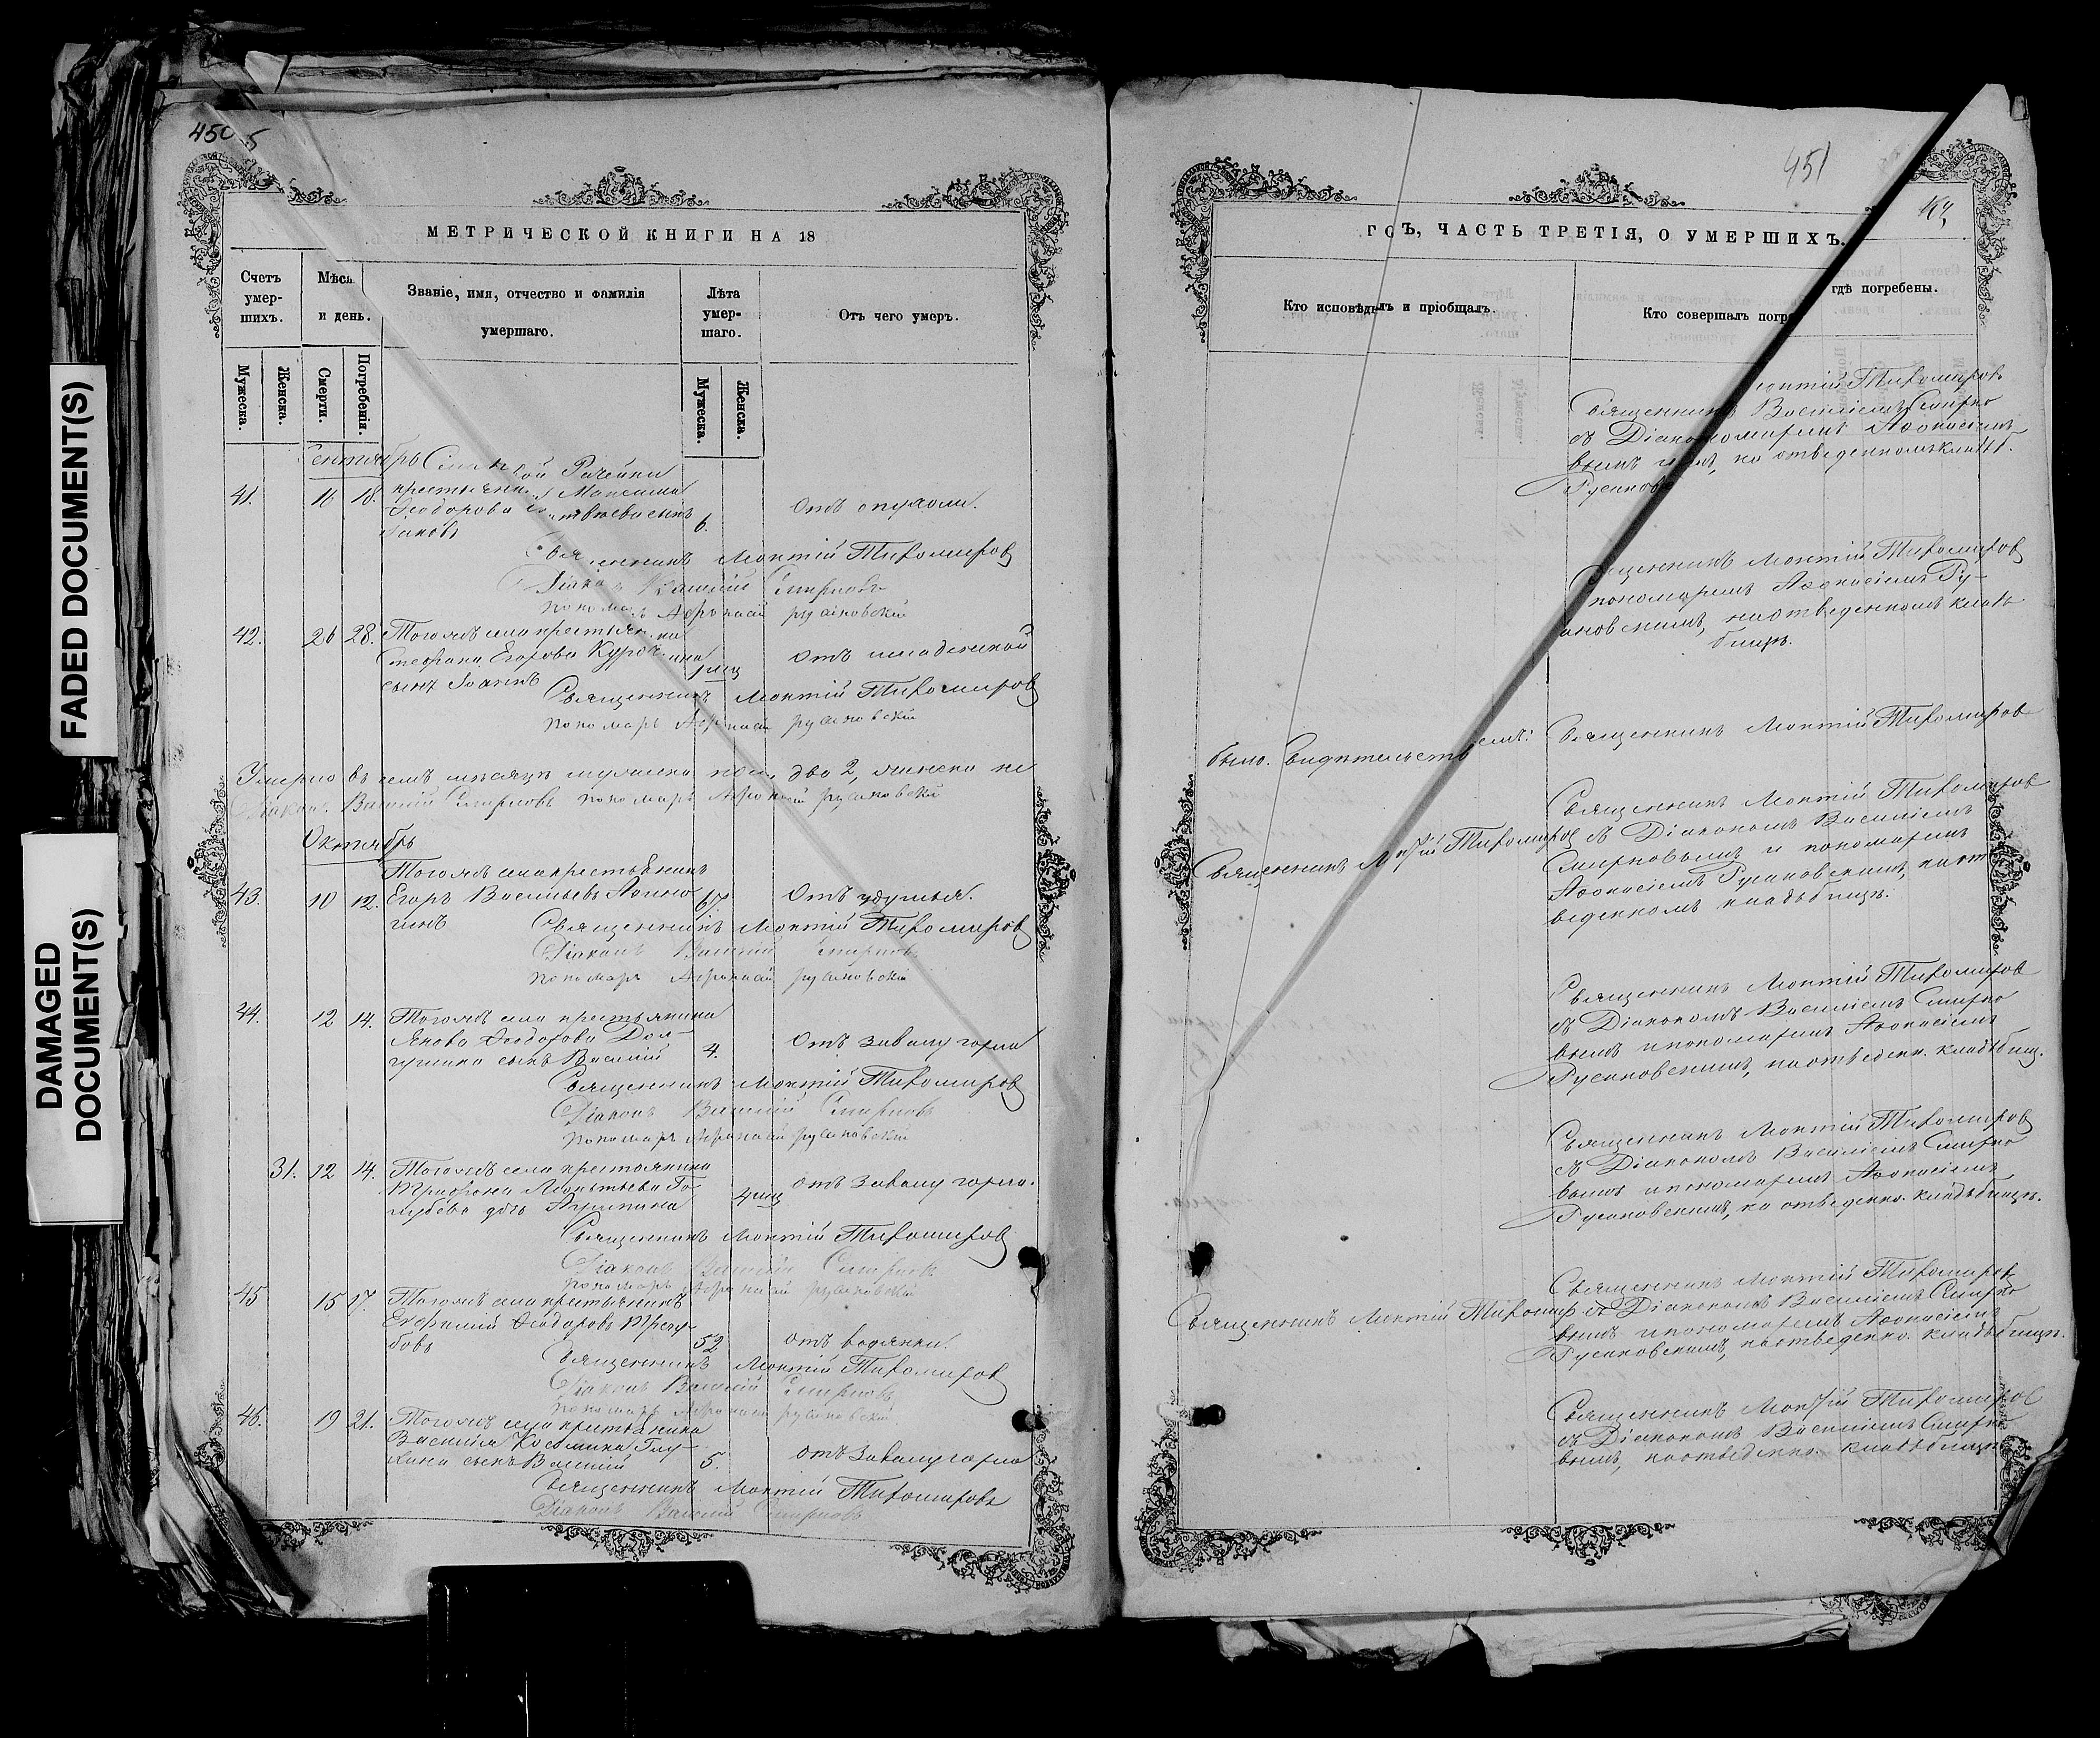 FADED DOCUMENT(S)
DAMAGED
DOCUMENT(S)
450
МЕТРИЧЕСКОЙ КНИГИ НА 18
Счетъ
умер-
шихъ.
Мѣся
и день.
Званіе, имя, отчество и фамилія
умершаго.
Лѣта
умер-
шаго.
Отъ чего умеръ.
Мужеска.
Женска.
Смерти.
Погребенія.
Мужеска.
Женска.
Сентябрь
41. 16 18. крестьяни Максима
Ѳеодорова сынъ 6. Отъ опухоли.
Яковъ
Священникъ Монтій Тихомировъ
Діаконъ Василій Смирновъ
пономарь Аѳонасій Русановскій
42. 26 28. Тогожъ села крестьянина
Стефана Егорова 1 мец Отъ младенской
сынъ Іоаннъ
Священникъ Монтій Тихомировъ
пономарь Аѳонасій Русановскій
Умерло въ семъ мѣсяцѣ мужеска пола два 2, женска не
Діаконъ Василій Смирновъ пономарь Аѳонасій Русановскій
Октябрь
Тогожъ села крестьянинъ
43. 10 12. Егоръ Васильевъ 67. Отъ удушья.
Священникъ Монтій Тихомировъ
Діаконъ Василій Смирновъ
пономарь Аѳонасій Русановскій
44. 12 14. Тогожъ села крестьянина
Якова Ѳеодорова Дол- 4. Отъ завалу горла
гушина сынъ Василій
Священникъ Монтій Тихомировъ
Діаконъ Василій Смирновъ
пономарь Аѳонасій Русановскій
31. 12 14. Тогожъ села крестьянина
Трифона Леонтьева Го- 4 мец отъ завалу горла.
лубева дочь Агрипина
Священникъ Монтій Тихомировъ
Діаконъ Василій Смирновъ
пономарь Аѳонасій Русановскій
45 15 17. Тогожъ села крестьянинъ
Евфимий Ѳеодоровъ Трегу-
бовъ 52 отъ водянки.
Священникъ Монтій Тихомировъ
Діаконъ Василій Смирновъ
пономарь Аѳонасій Русановскій
46. 19 21. Тогожъ села крестьянина
Василія Козьмина
сынъ Василій 5. отъ завалу горла
Священникъ Монтій Тихомировъ
Діаконъ Василій Смирновъ
451
ГОЪ, ЧАСТЬ ТРЕТІЯ, О УМЕРШИХЪ.
Кто исповѣдылъ и пріобщалъ.
Кто совершалъ погре
гдѣ погребены.
онтій Тихомировъ
Священникъ Василіемъ Смирно
съ Діако номаремъ Аѳонасіемъ
вымъ на отведенномъ кладб.
Русановс
щенникъ Монтій Тихомировъ
пономаремъ Аѳонасіемъ Ру-
ановскимъ, на отведенномъ клад
бищѣ.
было. Свидѣтельств емъ: Священникъ Монтій Тихомировъ
Священникъ Монтій Тихомировъ
Священникъ Монтій Тихомировъ съ Діакономъ Василіемъ
Смирновымъ и пономаремъ
Аѳонасіемъ Русановскимъ, на от
веденномъ кладьбищѣ.
Священникъ Монтій Тихомировъ
съ Діакономъ Василіемъ Смирно
вымъ и пономаремъ Аѳонасіемъ
Русановскимъ, на отведенн. кладьбищ.
Священникъ Монтій Тихомировъ
съ Діакономъ Василіемъ Смирно
вымъ и пономаремъ Аѳонасіемъ
Русановскимъ, на отведенно. кладьбищѣ.
Священникъ Монтій Тихомировъ
Священникъ Монтій Тихомир съ Діакономъ Василіемъ Смирно
вымъ и пономаремъ Аѳонасіемъ
Русановскимъ, на отведенно. кладьбищѣ.
Священникъ Монтій Тихомировъ
съ Діакономъ Василіемъ Смирно
вымъ, на отведенно. кладьбищѣ